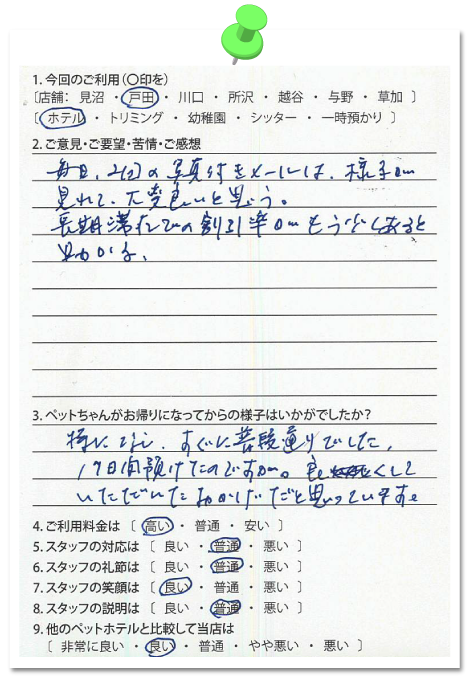 1. 今回のご利用(〇印を)
〔店舗: 見沼 ・ 戸田 ・ 川口 ・ 所沢 ・ 越谷 ・ 与野 ・ 草加 〕
〔ホテル ・ トリミング ・ 幼稚園 ・ シッター ・ 一時預かり 〕
2.ご意見・ご要望・苦情・ご感想
毎日、2回の写真付きメールは、様子が
見れて、大変良いと思う。
長期滞在での割引率がもう少しあると
助かる。
3.ペットちゃんがお帰りになってからの様子はいかがでしたか?
特になし、すぐに普段通りでした。
17日間預けたのですが。良くして
いただいたおかげだと思っています。
4.ご利用料金は 〔 高い ・ 普通 ・ 安い 〕
5.スタッフの対応は 〔 良い ・ 普通 ・ 悪い 〕
6.スタッフの礼節は 〔 良い ・ 普通 ・ 悪い 〕
7.スタッフの笑顔は 〔 良い ・ 普通 ・ 悪い 〕
8.スタッフの説明は 〔 良い ・ 普通 ・ 悪い 〕
9.他のペットホテルと比較して当店は
〔 非常に良い ・ 良い ・ 普通 ・ やや悪い ・ 悪い 〕